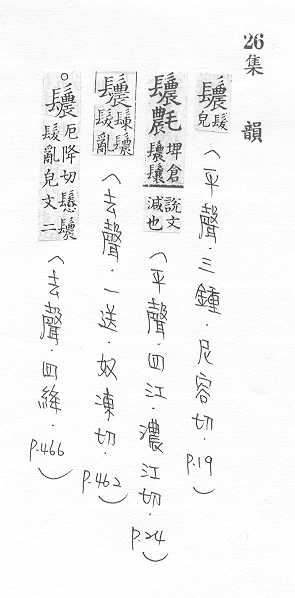 26 集韻
鬞 髮皃 (平聲.三鍾.尼容切.P.19)
鬞 埤倉鬞鬤 說文減也 (平聲.四江.濃江切.P.24)
鬞 鬞髮亂 (去聲.一送.奴凍切.P.462)
○鬞 厄降切 鬞髮亂皃文二 (去聲.四絳.P.466)